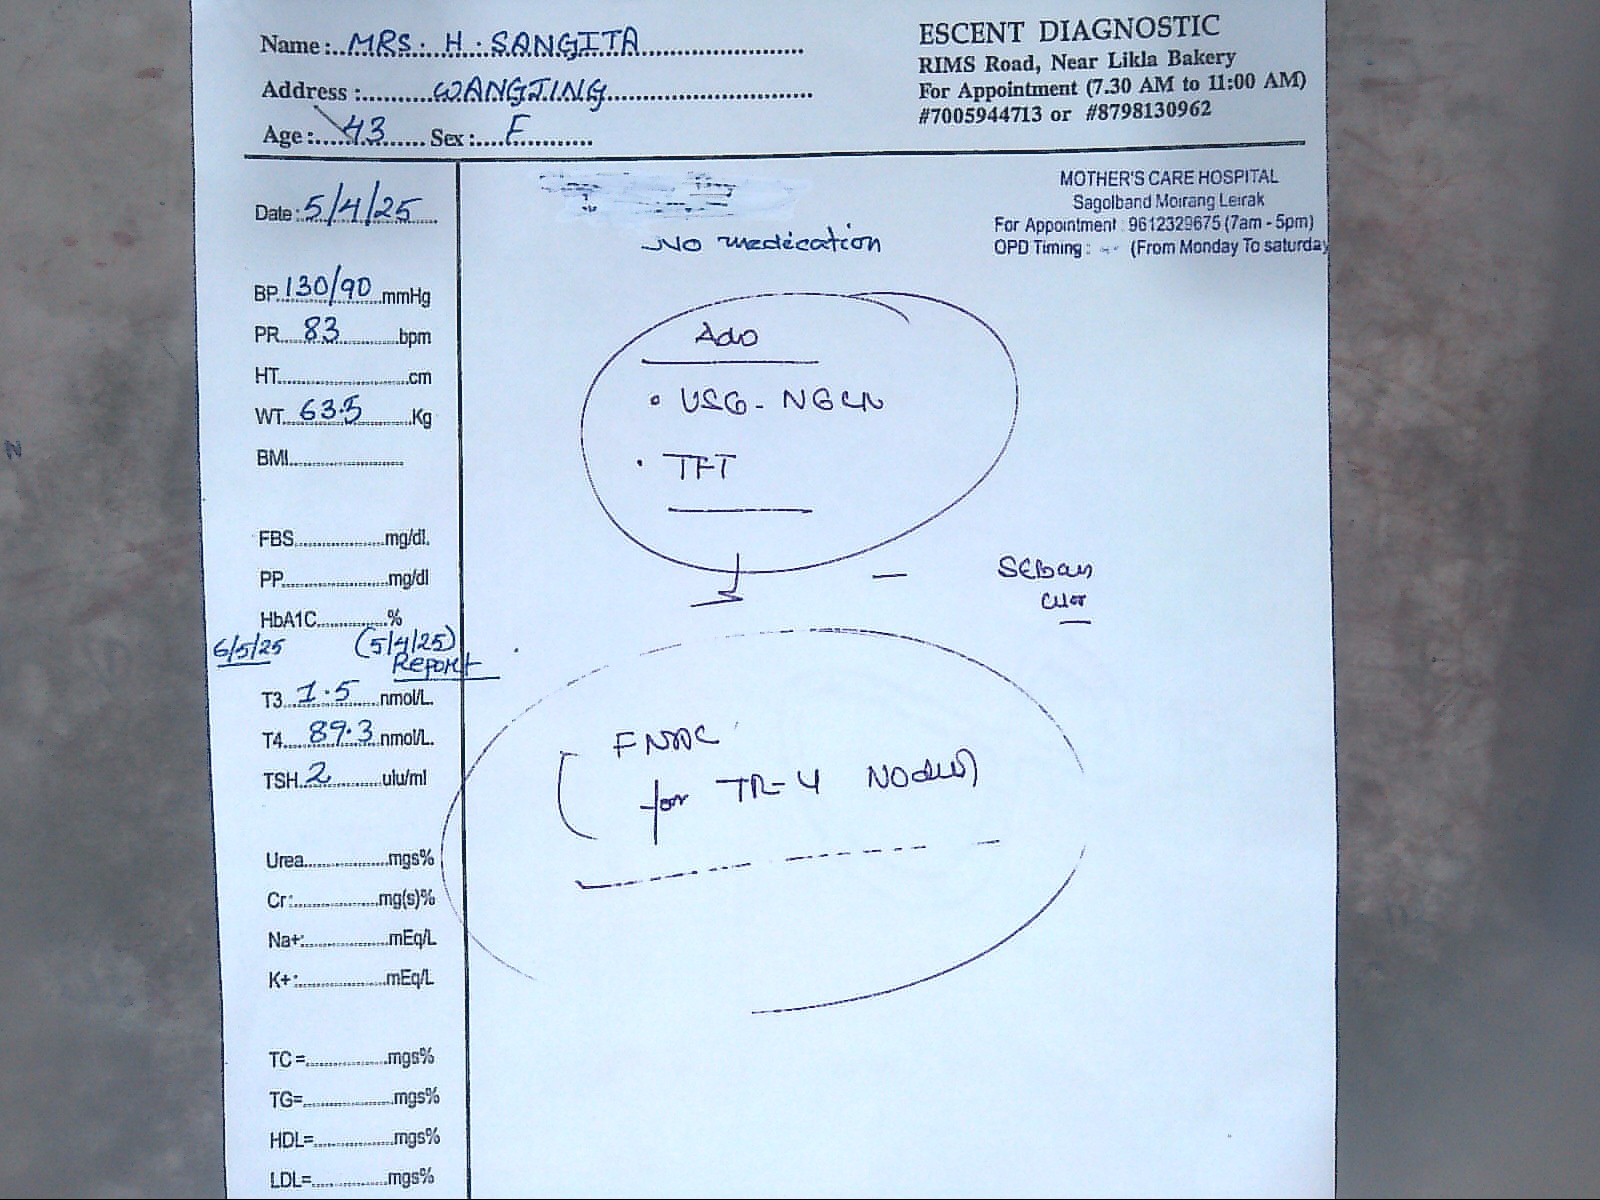 Name :..MRS. H. SANGITA
Address :..........WANGJING
Age:....43...... Sex :....F
ESCENT DIAGNOSTIC
RIMS Road, Near Likla Bakery
For Appointment (7.30 AM to 11:00 AM)
#7005944713 or #8798130962
MOTHER'S CARE HOSPITAL
Sagolband Moirang Leirak
For Appointment : 9612329675 (7am - 5pm)
OPD Timing : (From Monday To saturday
Date: 5/4/25
BP 130/90 mmHg
PR 83 bpm
HT cm
WT 63.5 Kg
BMI
FBS mg/dl.
PP mg/dl
HbA1C %
6/5/25 (5/4/25)
Report
T3 1.5 nmol/L.
T4 89.3 nmol/L.
TSH 2 ulu/ml
Urea mgs%
Cr: mg(s)%
Na+: mEq/L
K+: mEq/L
TC = mgs%
TG= mgs%
HDL= mgs%
LDL= mgs%
No medication
Adv
• USG-NECK
• TFT
FNAC
for TR-4 Nodule